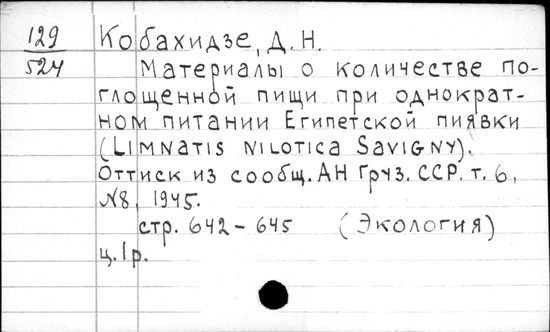 129
524
Кобахидзе, Д. Н.
Материалы о количестве по-
глощенной пищи при однократ-
ном питании Египетской пиявки
(LIMNATIS NILOTICA SAVIGNY).
Оттиск из сообщ. АН Груз. ССР. т. 6,
№8, 1945.
стр. 642-645 (Экология)
ц. 1р.